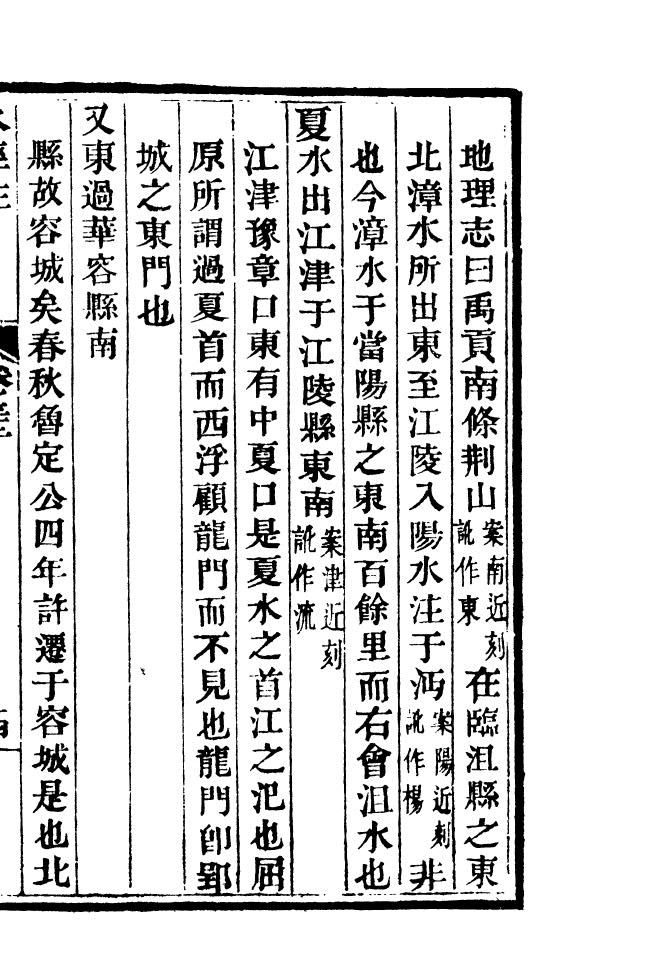 地理志曰禹貢南條荆山案南近刻訛作東在臨沮縣之東
北漳水所出東至江陵入陽水注于沔案陽近刻訛作楊非
也今漳水于當陽縣之東南百餘里而右會沮水也
夏水出江津于江陵縣東南案津近刻訛作流
江津豫章口東有中夏口是夏水之首江之汜也屈
原所謂過夏首而西浮顧龍門而不見也龍門卽郢
城之東門也
又東過華容縣南
縣故容城矣春秋魯定公四年許遷于容城是也北